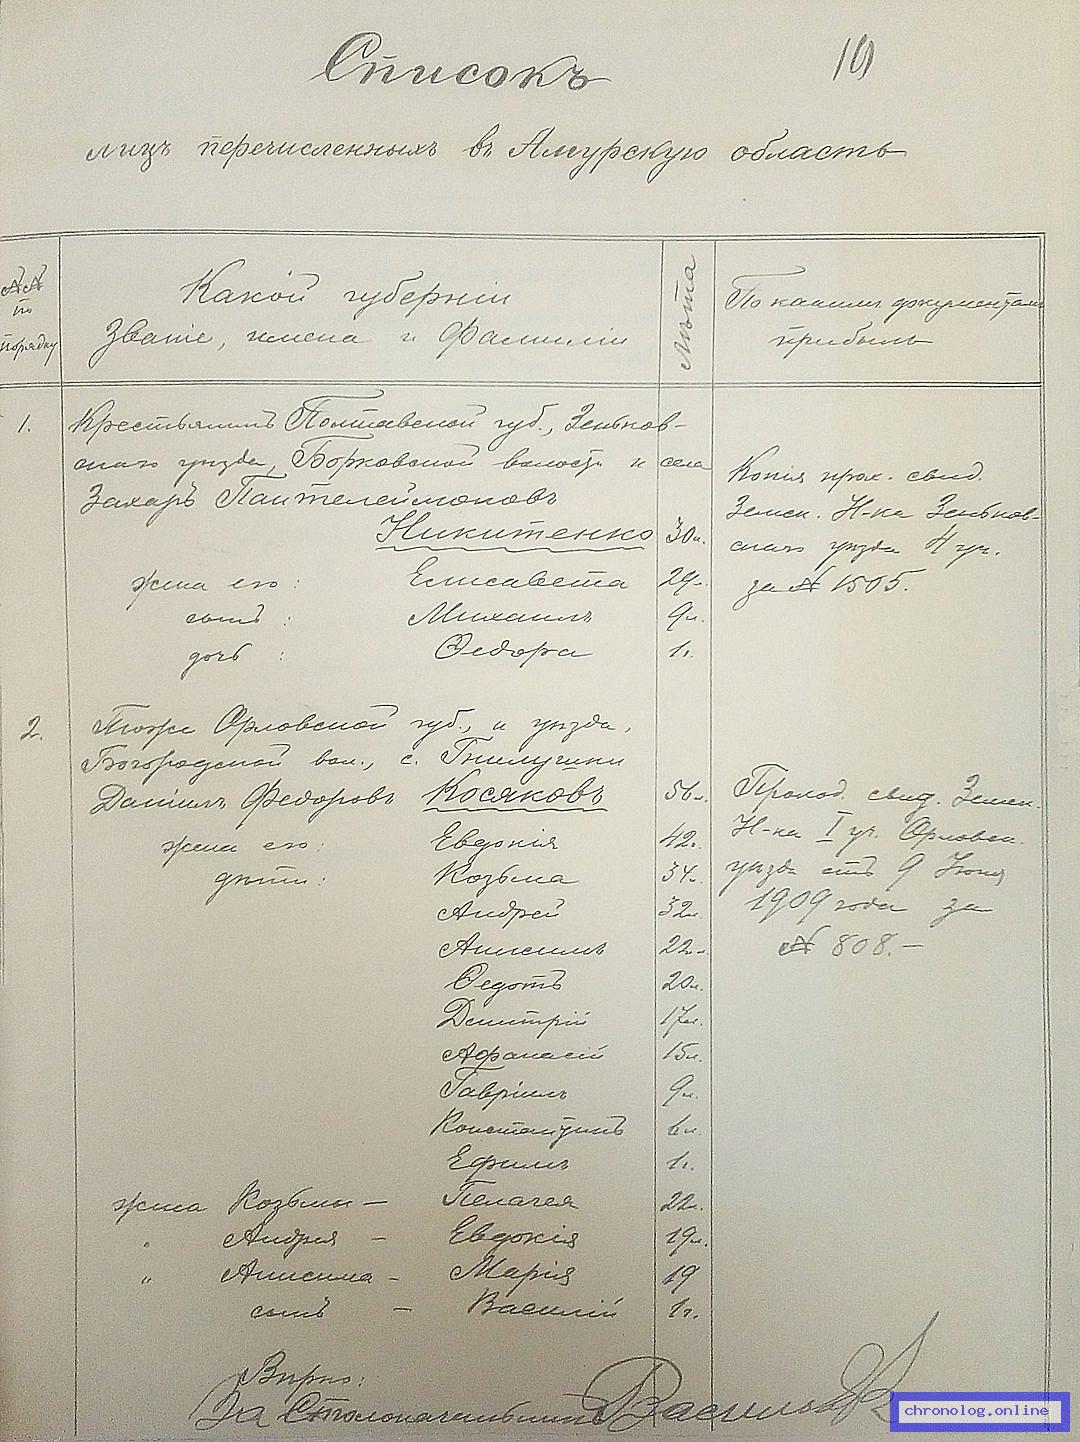 Списокъ
10
лицъ перечисленныхъ въ Амурскую область
№№ по порядку
Какой губерніи
Званіе, имена и фамиліи
Лѣта
По какимъ документамъ
прибылъ
1.
Крестьянинъ Полтавской губ., Зеньков-
скаго уѣзда, Борковской волости и села
Захаръ Пантелеймоновъ
Никитенко 30л.
жена его: Елисавета 29л.
сынъ: Михаилъ 9л.
дочь: Ѳедора 1г.
Копія прох. свид.
Земск. Н-ка Зеньков-
скаго уѣзда 4 уч.
за № 1505.
2.
Тоже Орловской губ., и уѣзда,
Богородской вол., с. Гнилушки
Даніилъ Федоровъ Косяковъ 56л.
жена его: Евдокія 42г.
дѣти: Козьма 34л.
Андрей 32л.
Анисимъ 22л.
Ѳедотъ 20л.
Дмитрій 17л.
Афанасій 15л.
Гавріилъ 9л.
Константинъ 6л.
Ефимъ 1г.
жена Козьмы – Пелагея 22л.
" Андрея – Евдокія 19л.
" Анисима – Марія 19
сынъ – Василій 1г.
Проход. свид. Земск.
Н-ка I уч. Орловск.
уѣзда отъ 9 Июня
1909 года за
№ 808.–
Вѣрно:
За Столоначальника Васильев
chronolog.online